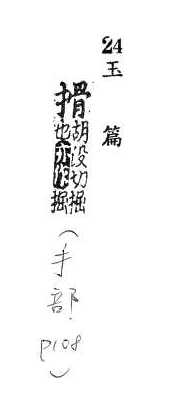 24 玉篇
搰胡没切掘也亦作掘（手部 P108）